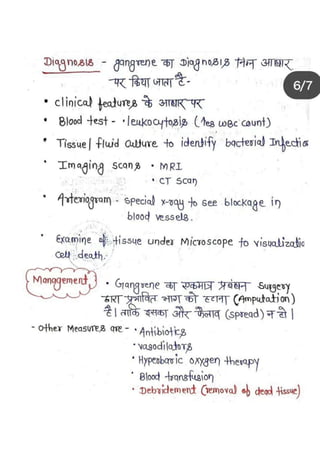 Diagnosis - gangrene का Diagnosis निम्न आधार
पर किया जाता है-
6/7
• clinical features के आधार पर
• Blood test - • leukocytosis (↑es WBC count)
• Tissue/ fluid culture to identify bacterial Infection
• Imaging scans • MRI
• CT scan
• Arteriogram - special x-ray to see blockage in
blood vessels.
• Examine of tissue under Microscope to visualizatic
cell death.
Management • Gangrene का एकमात्र प्रबंधन Surgery
द्वारा प्रभावित भाग को हटाना (Amputation)
है। ताकि इसका और फैलाव (spread) न हो।
- Other Measures are - • Antibiotics
• vasodilators
• Hyperbaric oxygen therapy
• Blood transfusion
• Debridement (removal of dead tissue)